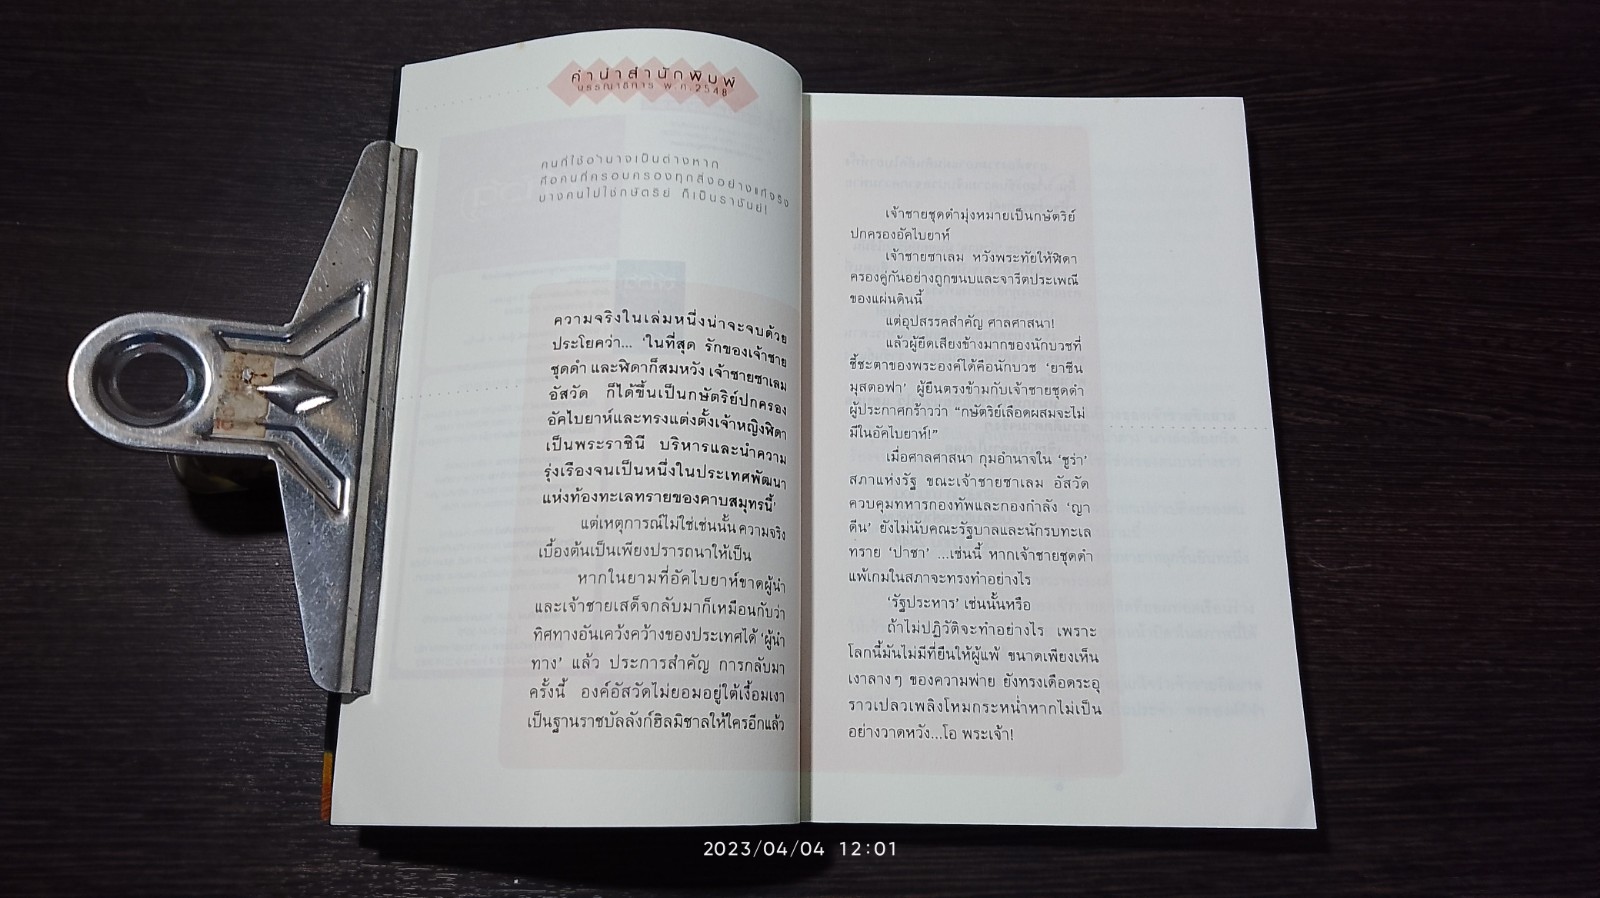 คำนำสำนักพิมพ์
บรรณาธิการ พ.ศ.2548
คนที่ใช้อำนาจเป็นต่างหาก
คือคนที่ครอบครองทุกสิ่งอย่างแท้จริง
บางคนไม่ใช่กษัตริย์ ก็เป็นราชันย์!
ความจริงในเล่มหนึ่งน่าจะจบด้วย
ประโยคว่า... ‘ในที่สุด รักของเจ้าชาย
ชุดดำ และฬิดาก็สมหวัง เจ้าชายซาเลม
อัสวัด ก็ได้ขึ้นเป็นกษัตริย์ปกครอง
อัคไบยาห์และทรงแต่งตั้งเจ้าหญิงฬิดา
เป็นพระราชินี บริหารและนำความ
รุ่งเรืองจนเป็นหนึ่งในประเทศพัฒนา
แห่งท้องทะเลทรายของคาบสมุทรนี้’
แต่เหตุการณ์ไม่ใช่เช่นนั้น ความจริง
เบื้องต้นเป็นเพียงปรารถนาให้เป็น
หากในยามที่อัคไบยาห์ขาดผู้นำ
และเจ้าชายเสด็จกลับมาก็เหมือนกับว่า
ทิศทางอันเคว้งคว้างของประเทศได้ ‘ผู้นำ
ทาง’ แล้ว ประการสำคัญ การกลับมา
ครั้งนี้ องค์อัสวัดไม่ยอมอยู่ใต้เงื้อมเงา
เป็นฐานราชบัลลังก์ฮิลมิชาลให้ใครอีกแล้ว
เจ้าชายชุดดำมุ่งหมายเป็นกษัตริย์
ปกครองอัคไบยาห์
เจ้าชายซาเลม หวังพระทัยให้ฬิดา
ครองคู่กันอย่างถูกขนบและจารีตประเพณี
ของแผ่นดินนี้
แต่อุปสรรคสำคัญ ศาลศาสนา!
แล้วผู้ยึดเสียงข้างมากของนักบวชที่
ชี้ชะตาของพระองค์ได้คือนักบวช ‘ยาซีน
มุสตอฟา’ ผู้ยืนตรงข้ามกับเจ้าชายชุดดำ
ผู้ประกาศกร้าวว่า “กษัตริย์เลือดผสมจะไม่
มีในอัคไบยาห์!”
เมื่อศาลศาสนา กุมอำนาจใน ‘ชูร่า’
สภาแห่งรัฐ ขณะเจ้าชายซาเลม อัสวัด
ควบคุมทหารกองทัพและกองกำลัง ‘ญา
ดีน’ ยังไม่นับคณะรัฐบาลและนักรบทะเล
ทราย ‘ปาชา’ ...เช่นนี้ หากเจ้าชายชุดดำ
แพ้เกมในสภาจะทรงทำอย่างไร
‘รัฐประหาร’ เช่นนั้นหรือ
ถ้าไม่ปฏิวัติจะทำอย่างไร เพราะ
โลกนี้มันไม่มีที่ยืนให้ผู้แพ้ ขนาดเพียงเห็น
เงาลางๆ ของความพ่าย ยังทรงเดือดระอุ
ราวเปลวเพลิงโหมกระหน่ำหากไม่เป็น
อย่างวาดหวัง...โอ พระเจ้า!
2023/04/04 12:01